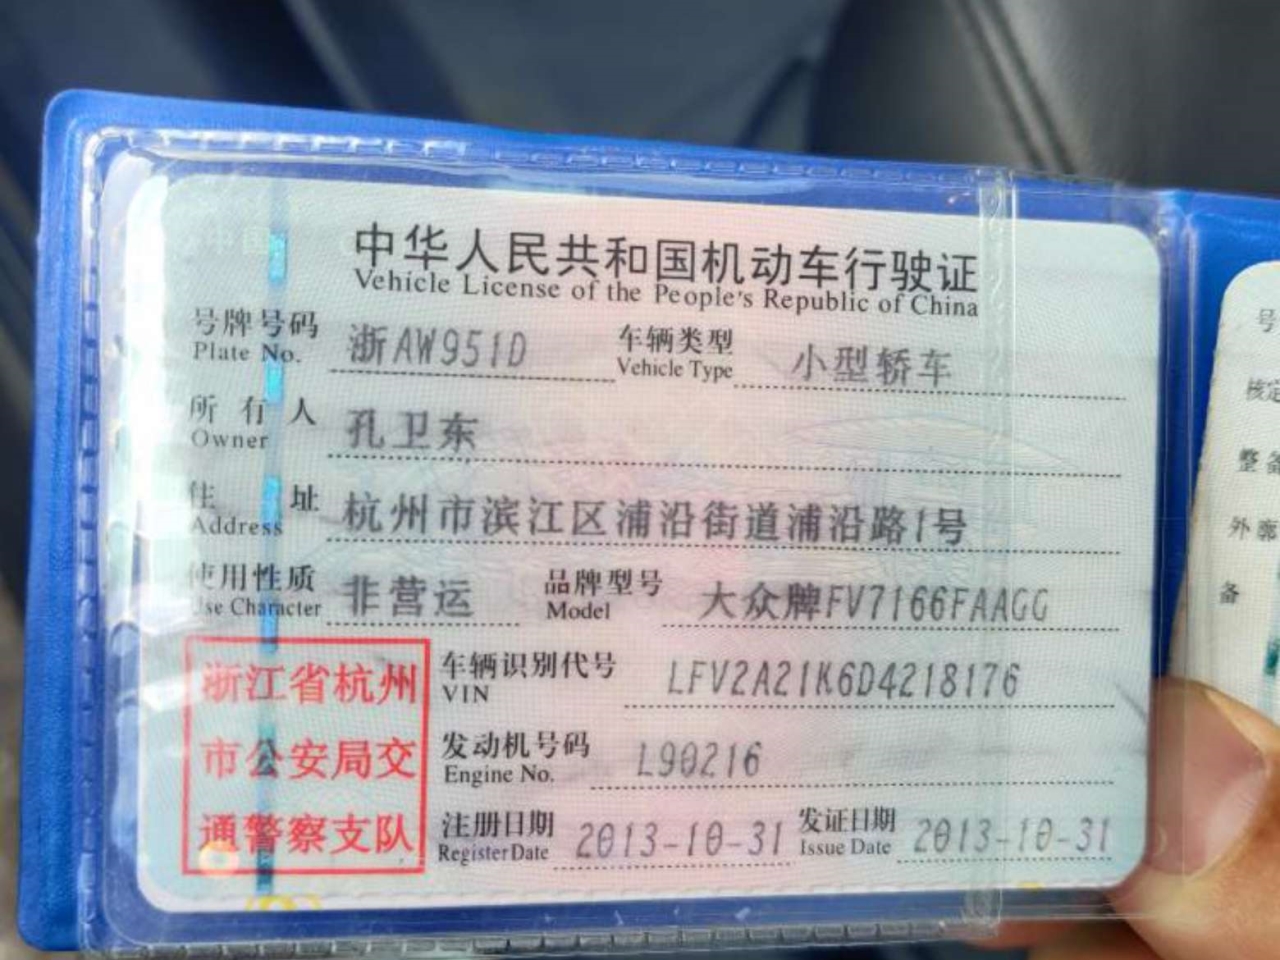 中华人民共和国机动车行驶证
Vehicle License of the People's Republic of China
号牌号码 浙AW951D 车辆类型 小型轿车
Plate No. Vehicle Type
所有人 孔卫东
Owner
住址 杭州市滨江区浦沿街道浦沿路1号
Address
使用性质 非营运 品牌型号 大众牌FV7166FAAGG
Use Character Model
浙江省杭州
市公安局交
通警察支队
车辆识别代号 LFV2A21K6D4218176
VIN
发动机号码 L90216
Engine No.
注册日期 2013-10-31 发证日期 2013-10-31
Register Date Issue Date
号
核定
整备
外廓
备